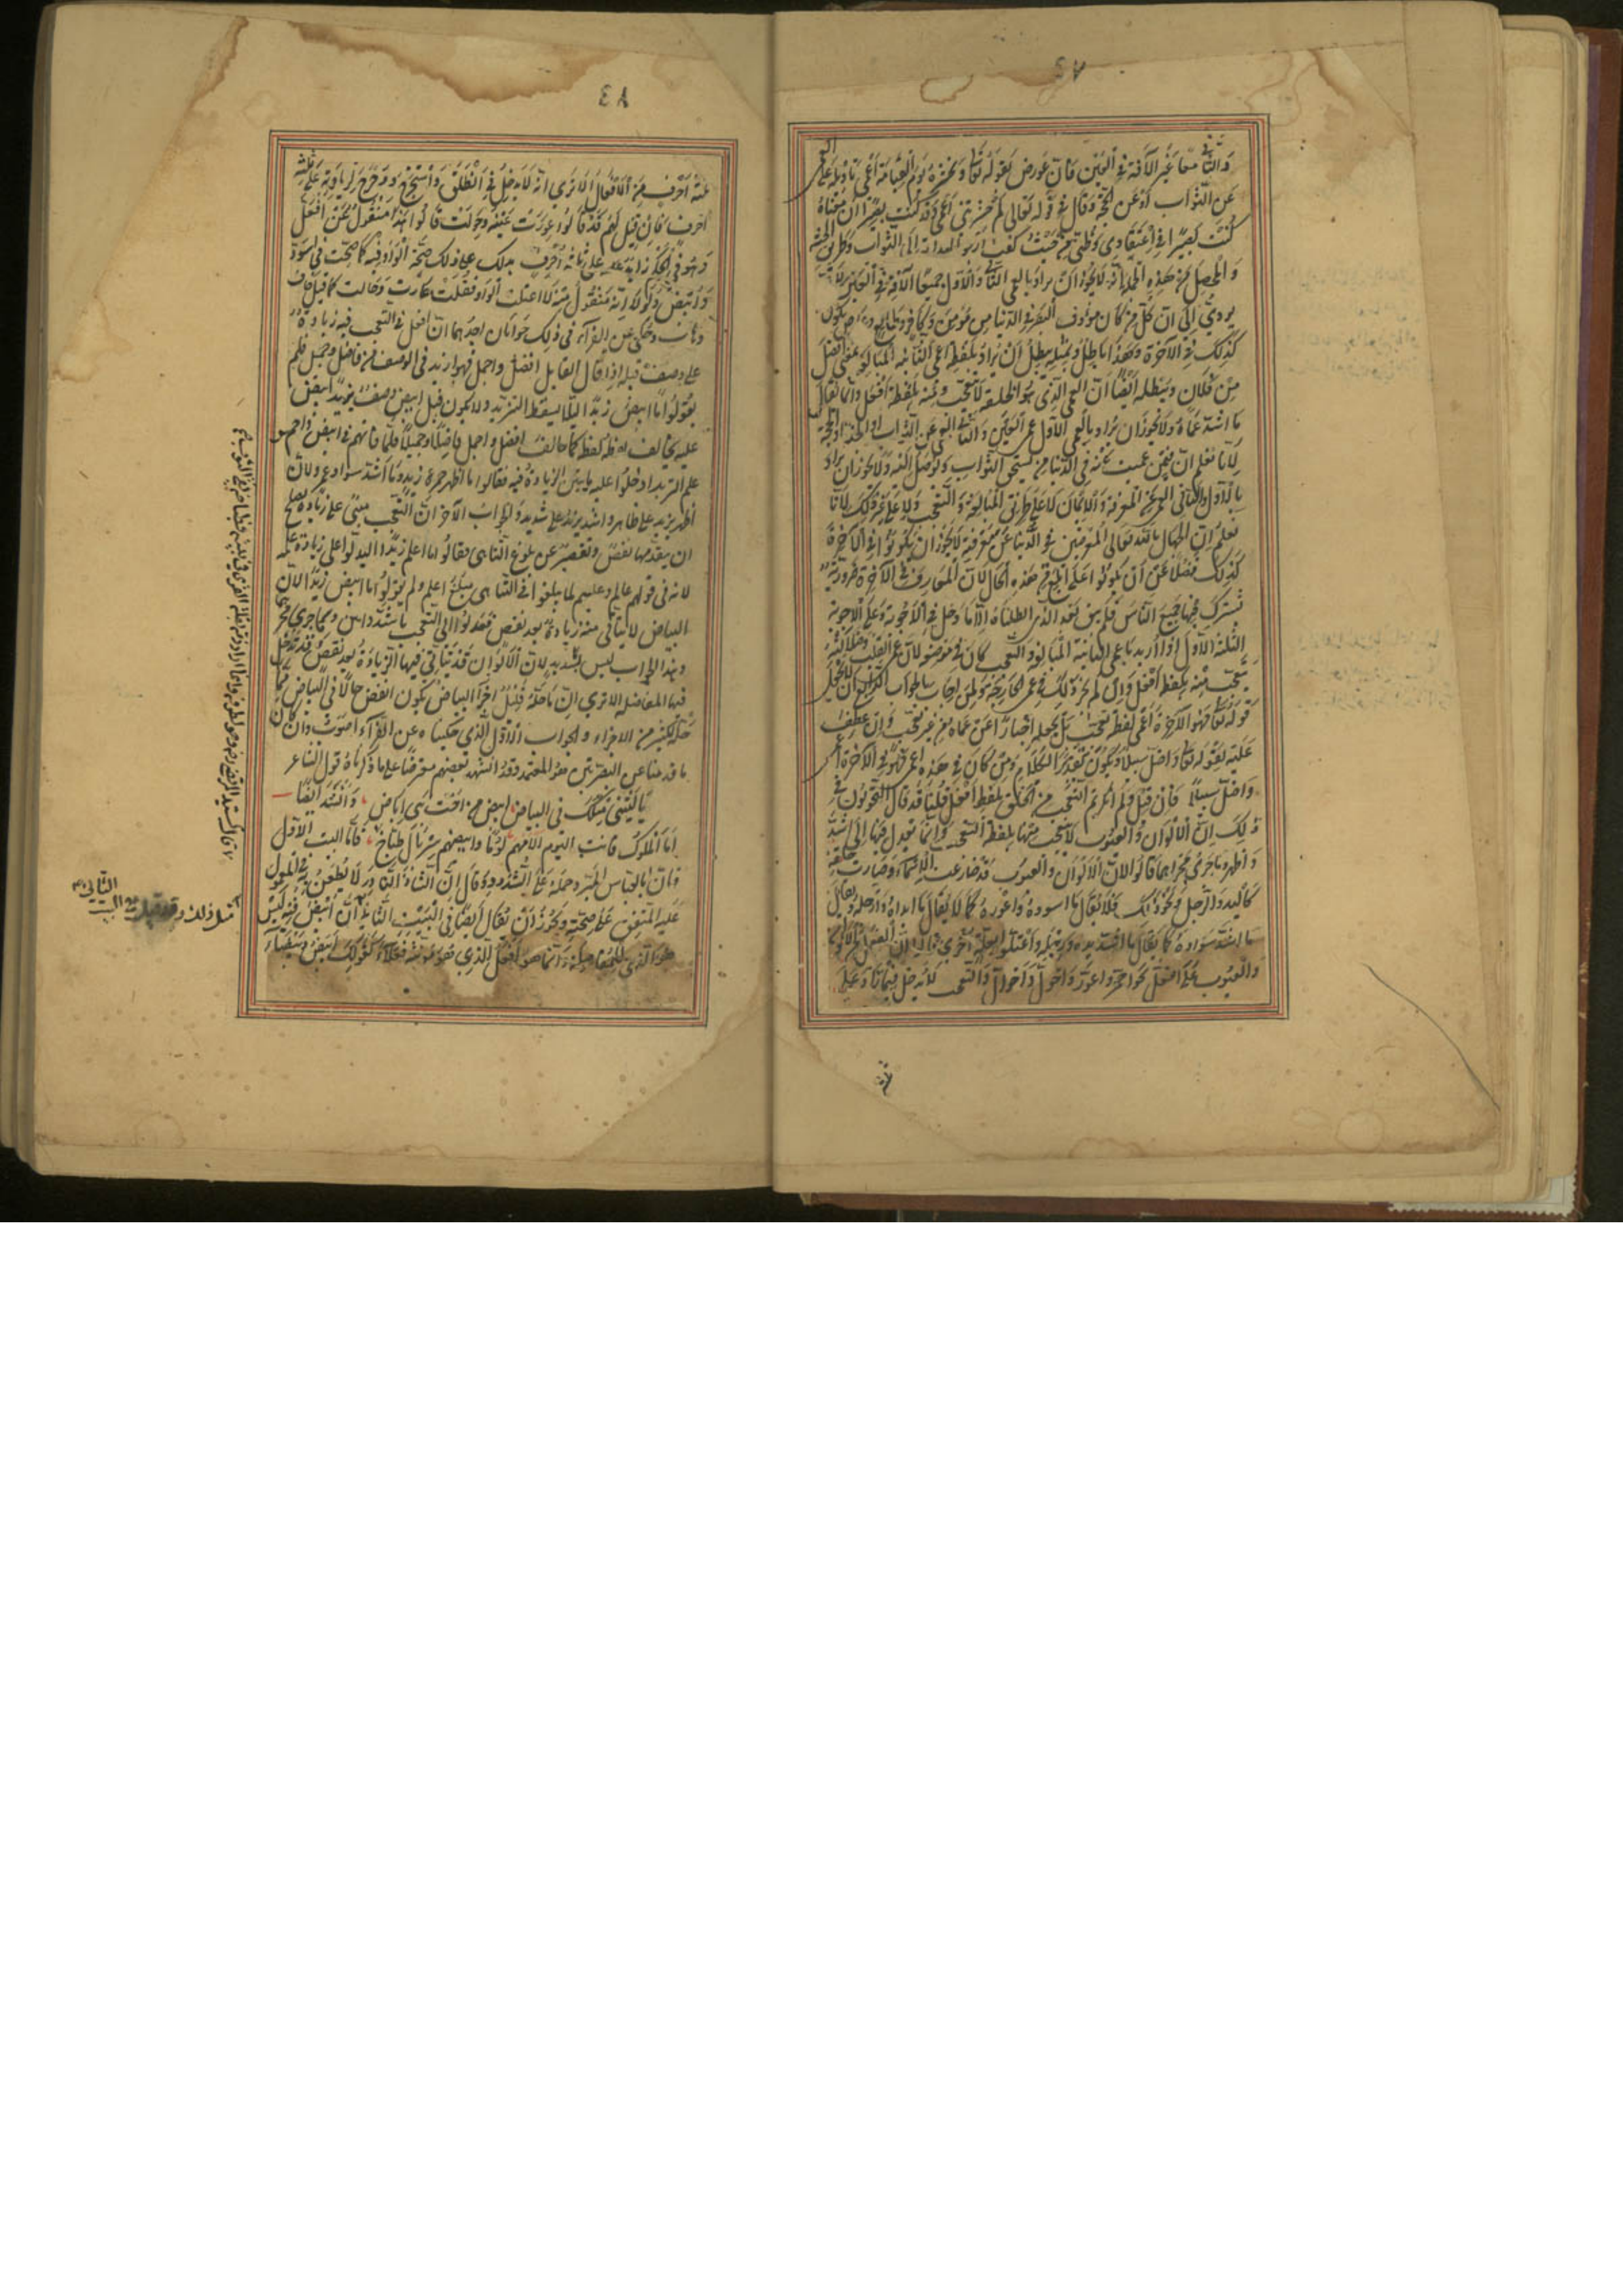 ٤٧
والثاني معا غير الآفة في العين فان عورض بقوله تعالى ونحشره يوم القيمة اعمى تاوله على العمى
عن الثواب او عن الحجة وقال في قوله تعالى لم حشرتني اعمى وقد كنت بصيرا ان معناه
كنت بصيرا في اعتقادي وظني من حيث كنت ارجو الهداية الى الثواب وطريق الجنة
والمحصل من هذه الجملة انه لا يجوز ان يراد بالعمى الثاني والاول جميعا الآفة في العين لانه
يودي الى ان كل من كان مؤوف البصر في الدنيا من مومن وكافر وطايع وعاص يكون
كذلك في الآخرة وهذا باطل وبمثله يبطل ان يراد بلفظة اعمى الثانية المبالغة بمعنى افضل
من فلان ويبطله ايضا ان العمى الذي هو الخلقة لا يتعجب منه بلفظة افعل وانما يقال
ما اشد عماه ولا يجوز ان يراد بالعمى الاول عمى العين والثاني العمى عن الثواب او الجنة او الحجة
لانا نعلم ان فيمن عميت عينه في الدنيا من يستحق الثواب ويوصل اليه ولا يجوز ان يراد
بالاول والثاني العمى عن المعرفة والايمان لا على طريق المبالغة والتعجب ولا على غير ذلك لانا
نعلم ان الجهال بالله تعالى المعرضين في الدنيا عن معرفته لا يجوز ان يكونوا في الآخرة
كذلك فضلا عن ان يكونوا على ابلغ من هذه الحال لان المعارف في الآخرة ضرورية
يشترك فيها جميع الناس فلم يبق بعد الذي ابطلناه الا ما دخل في الاجوبة وعلى الاجوبة
الثلثة الاول اذا اريد باعمى الثانية المبالغة والتعجب كان في موضعه لان عمى القلب وضلاله
يتعجب منه بلفظ افعل وان لم يجز ذلك في عمى الجارحة ولمن اجاب بالجواب الرابع ان لا يجعل
قوله تعالى فهو في الآخرة اعمى لفظة تعجب بل يجعله اخبارا عن عماه من غير تعجب وان عطف
عليه بقوله تعالى واضل سبيلا ويكون تقدير الكلام ومن كان في هذه اعمى فهو في الآخرة اعمى
واضل سبيلا فان قيل ولم انكرتم التعجب من الخلق بلفظ افعل قلنا قد قال النحويون في
ذلك ان الالوان والعيوب لا يتعجب منها بلفظ التعجب وانما يعدل فيها الى اشد
واظهر وما جرى مجراهما قالوا لان الالوان والعيوب قد ضارعت الاسماء وصارت خلقة
كاليد والرجل ونحو ذلك فلا يقال ما اسوده واعوره كما لا يقال ما ايداه وارجله ويقال
ما اشد سواده كما يقال ما اشد يده ورجله واعتلوا بعلة اخرى قالوا ان الفعل من الالوان
والعيوب على افعل نحو احمر واعور واحول واحوال والتعجب لا يدخل فيما زاد على
٤٨
ثلثة احرف من الافعال الا ترى انه لا يدخل في انطلق واستخرج ودحرج لزيادته على ثلثة
احرف فان قيل لهم قد قالوا عورت عينه وحولت قالوا هذا منقول من افعل
وهو في الحكم زايد على ثلاثة احرف يدلك على ذلك صحة الواو فيه كما صحت في اسود
وابيض ولولا انه منقول منه لاعتلت الواو فقلت عارت وحالت كما قيل خاف
وهاب وحكي عن الفراء في ذلك جوابان احدهما ان افعل في التعجب فيه زيادة
على وصف قبله اذا قال القايل افضل واجمل فهو ازيد في الوصف من فاضل وجميل فلم
يقولوا ما ابيض زيدا ليلا يسقط التزيد ولا يكون قبل ابيض وصف يزيد ابيض
عليه يخالف لفظه لفظه كما خالف افضل واجمل فاضلا وجميلا فلما فاتهم في ابيض واحمر
علم التزيد ادخلوا عليه ما يبين الزيادة فيه فقالوا ما اظهر حمرة زيد وما اشد سواد عمرو لان
اظهر يزيد على ظاهر واشد يزيد على شديد والجواب الآخر ان التعجب مبني على زيادة يصلح
ان يتقدمها نقص وتقصير عن بلوغ التناهي فقالوا ما اعلم زيدا ليدلوا على زيادة علمه
لانه في قولهم عالم وعليم لما يبلغوا في التناهي مبلغ اعلم ولم يقولوا ما ابيض زيدا لان
البياض لا يتأتى منه زيادة بعد نقص فعدلوا الى التعجب باشد وابين وما جرى مجراهما
وهذا الجواب ليس بسديد لان الالوان قد يتاتى فيها الزيادة بعد نقص وقد تدخل
فيها المفاضلة الا ترى ان ما حله قليل اجزاء البياض يكون انقص حالا في البياض مما
حله الكثير من الاجزاء والجواب الاول الذي حكيناه عن الفراء اصوب وان كان
ما قدمناه عن البصريين هو المعتمد وقد انشد بعضهم معترضا على ما ذكرناه قول الشاعر
يا ليتني مثلك في البياض ابيض من اخت بني اباض وانشد ايضا
اما الملوك فانت اليوم الأمهم لؤما وابيضهم سربال طباخ فاما البيت الاول
فان ابا العباس المبرد حمله على الشذوذ وقال ان الشاذ النادر لا يطعن به في المعمول
عليه المتفق على صحته ويجوز ان يقال ايضا في البيتين الثاني ان ابيض فيه ليس
هو الذي للمفاضلة وانما هو افعل الذي هو مؤنثه فعلاء كقولك ابيض وبيضاء